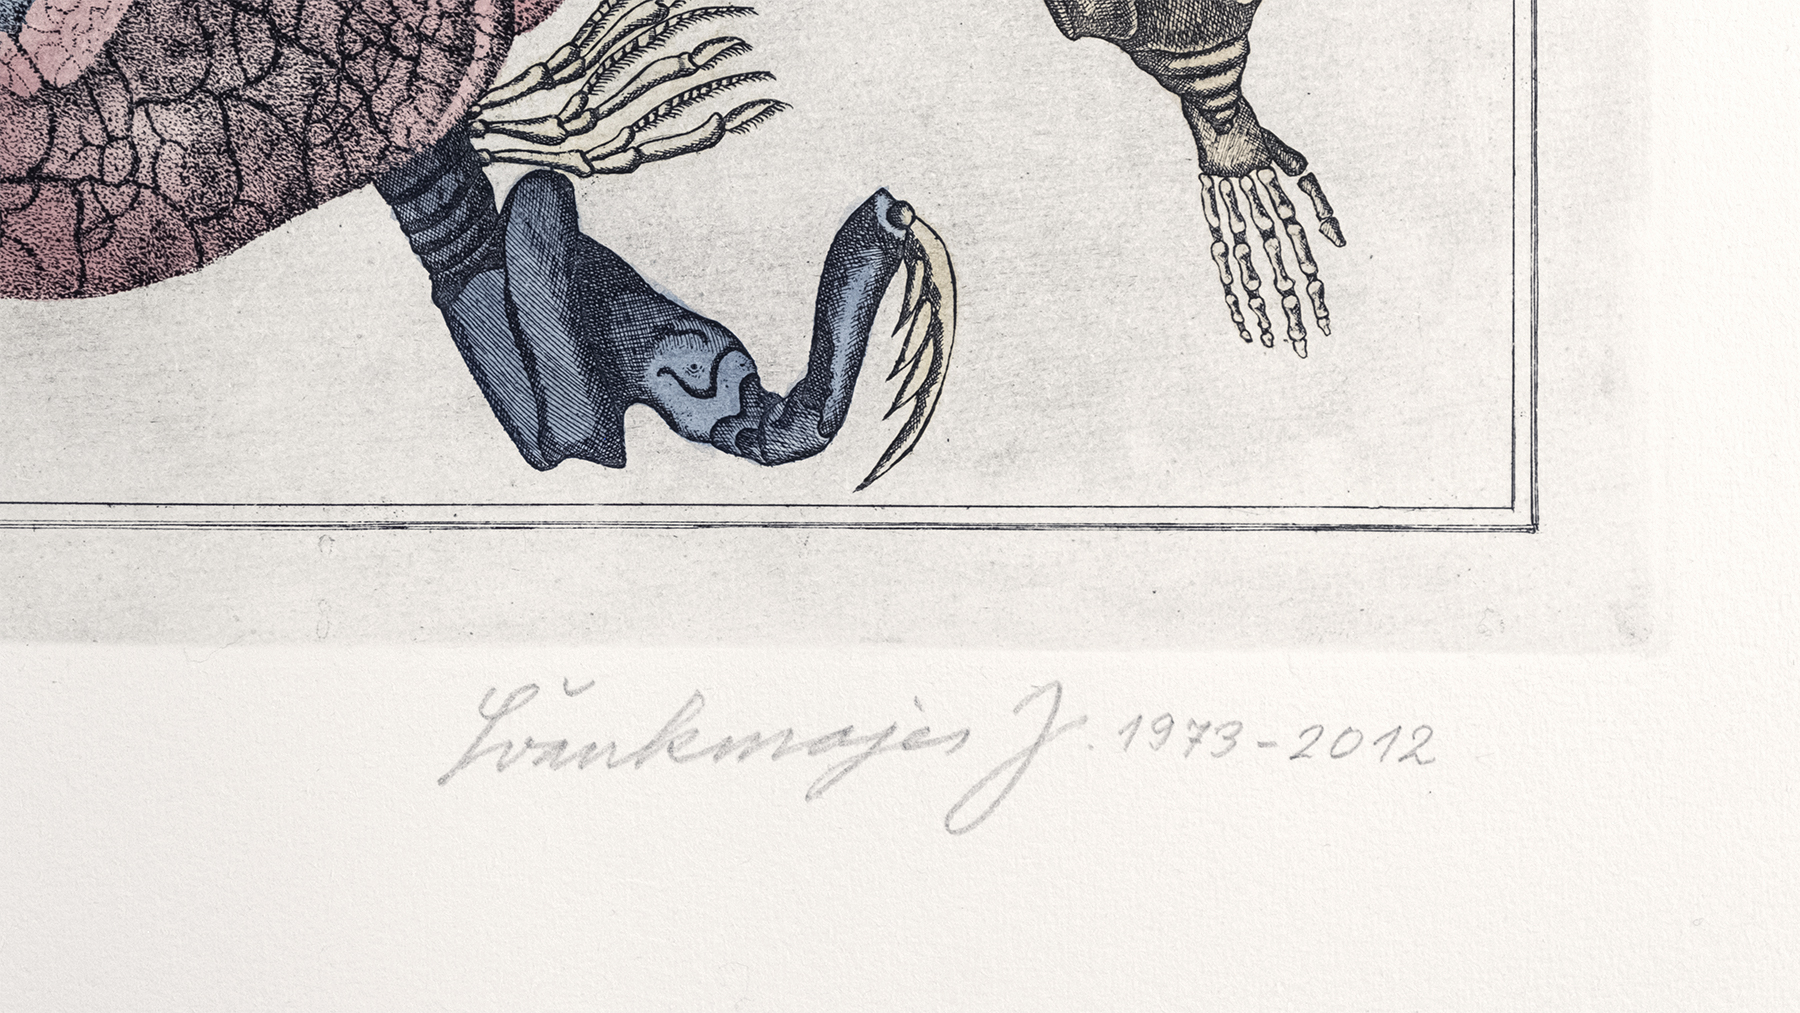 Švankmajer J. 1973-2012